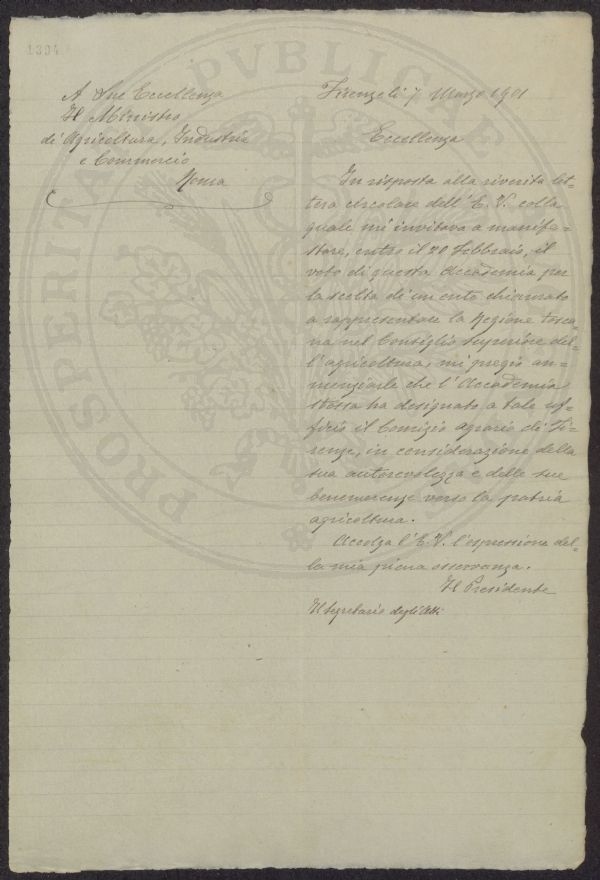 1304
A Sua Eccellenza
Il Ministro
di Agricoltura, Industria
e Commercio
Roma
Firenze li 7 Marzo 1901
Eccellenza
In risposta alla riverita let=
tera circolare dell'E. V. colla
quale mi invitava a manife=
stare, entro il 20 Febbraio, il
voto di questa Accademia per
la scelta di un ente chiamato
a rappresentare la Regione tosca=
na nel Consiglio superiore del=
l'agricoltura, mi pregio an=
nunziarle che l'Accademia
stessa ha designato a tale uf=
ficio il Comizio agrario di Fi=
renze, in considerazione della
sua autorevolezza e delle sue
benemerenze verso la patria
agricoltura.
Accolga l'E. V. l'espressione del=
la mia piena osservanza.
Il Presidente
Il Segretario degli Atti
PROSPERITA PVBLICAE